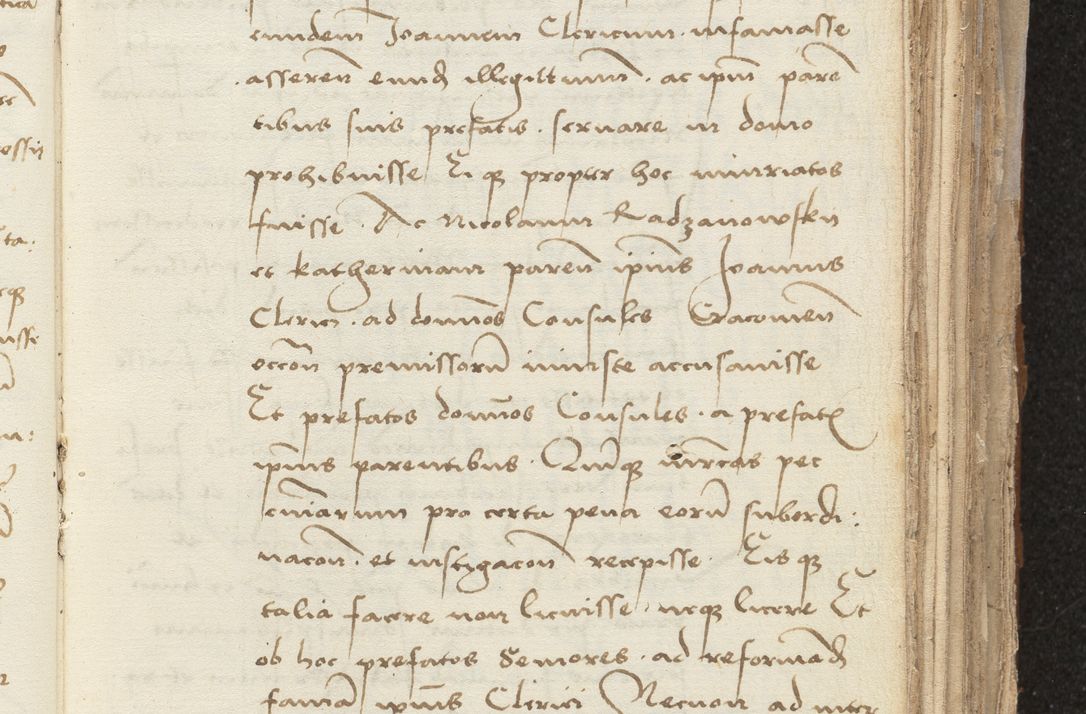 eundem Joannem Clericum infamasse
asseren eund illegittimum . ac ipm paren
tibus suis prefatis . seruare in domo
prohibuisse Ei q propter hoc iniuriatos
fuisse . Ac Nicolaum Radzanowskÿ
et Katherinam paren ipius Joannis
Clerici . ad domnos Consules Cracouien
occon premissoru iniuste accusauisse
Et prefatos domnos Consules . a prefat
ipius parentibus . Quinq mrcas pec
cuniarum pro certa pena eoru subordi:
nacon . et instigacon recepisse . Eis q
talia facere non licuisse . neq licere Et
ob hoc prefatos Seniores . ad reformand
fama ipius Clerici Necnon ad inter